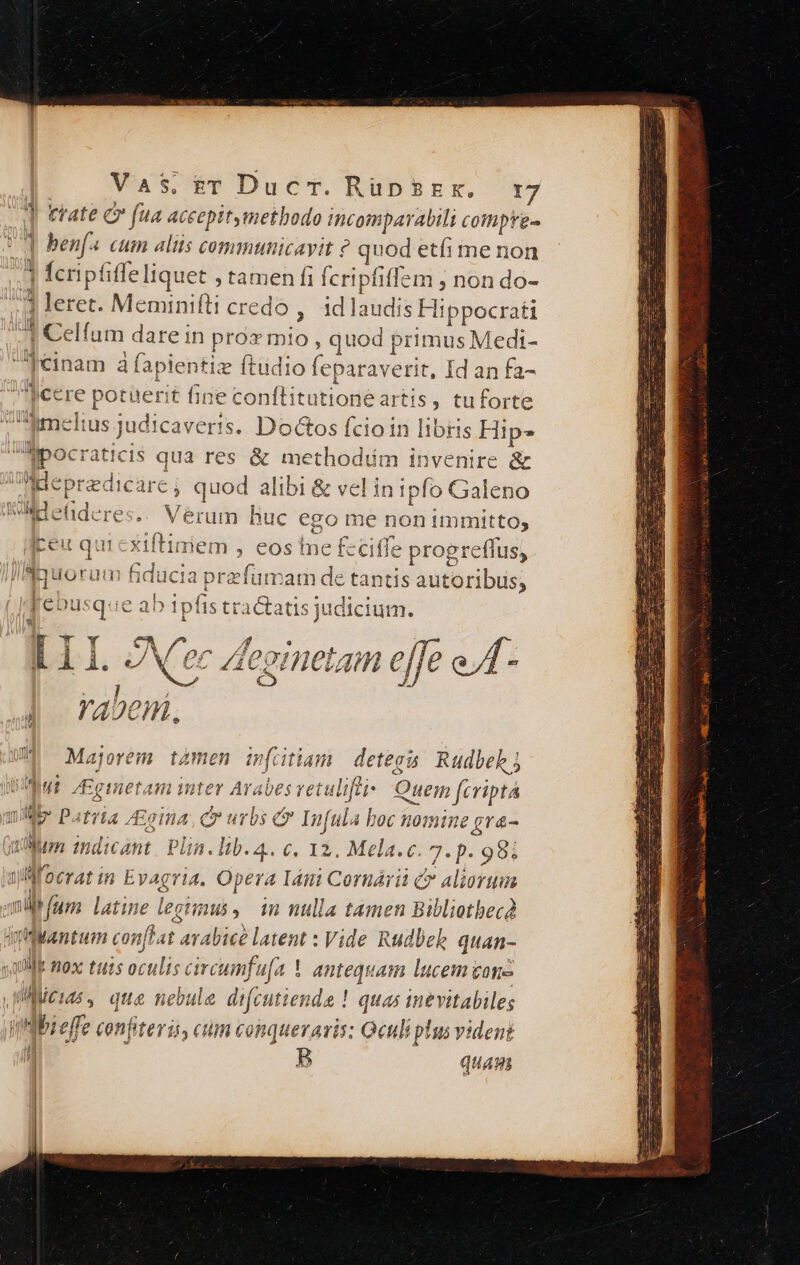 Vas. et Duct. Rudbek. 17
trate & ſua accepit, methodo incomparabili compre-
henſa cum aliis communicavit? quod etſi me non
ſcripſiſſe liquet, tamen ſi ſcripſiſſem, non do-
leret. Meminiſti credo, id laudis Hippocrati
Celſum dare in proœmio, quod primus Medi-
cinam à ſapientiæ ſtudio ſeparaverit, Id an fa-
cere potuerit ſine conſtitutione artis, tu forte
melius judicaveris. Doctos ſcio in libris Hip-
pocraticis qua res & methodum invenire &
deprædicare, quod alibi & vel in ipſo Galeno
deſideres. Verum huc ego me non immitto,
ceu qui exiſtimem, eos me feciſſe progreſſus,
quorum fiducia præſumam de tantis autoribus,
rebusque ab ipſis tractatis judicium.
III. Nec Æginetam eſſe A-
rabem.
Majorem tamen inſcitiam detegis Rudbek;
qui Æginetam inter Arabes retuliſti. Quem ſcripta
Patria Ægina, & urbs & Inſula hoc nomine gra-
indicant. Plin. lib. 4. c. 12. Mela. c. 7. p. 98.
in Evagria. Opera Iani Cornarii & aliorum
latine legimus, in nulla tamen Bibliothecâ
conſtat arabicè latent: Vide Rudbek quan-
nox tuis oculis circumfuſa! antequam lucem con-
que nebulæ diſcutiendæ! quas inevitabiles
eſſe confiteris, cum conqueraris: Oculi plus vident
B quam